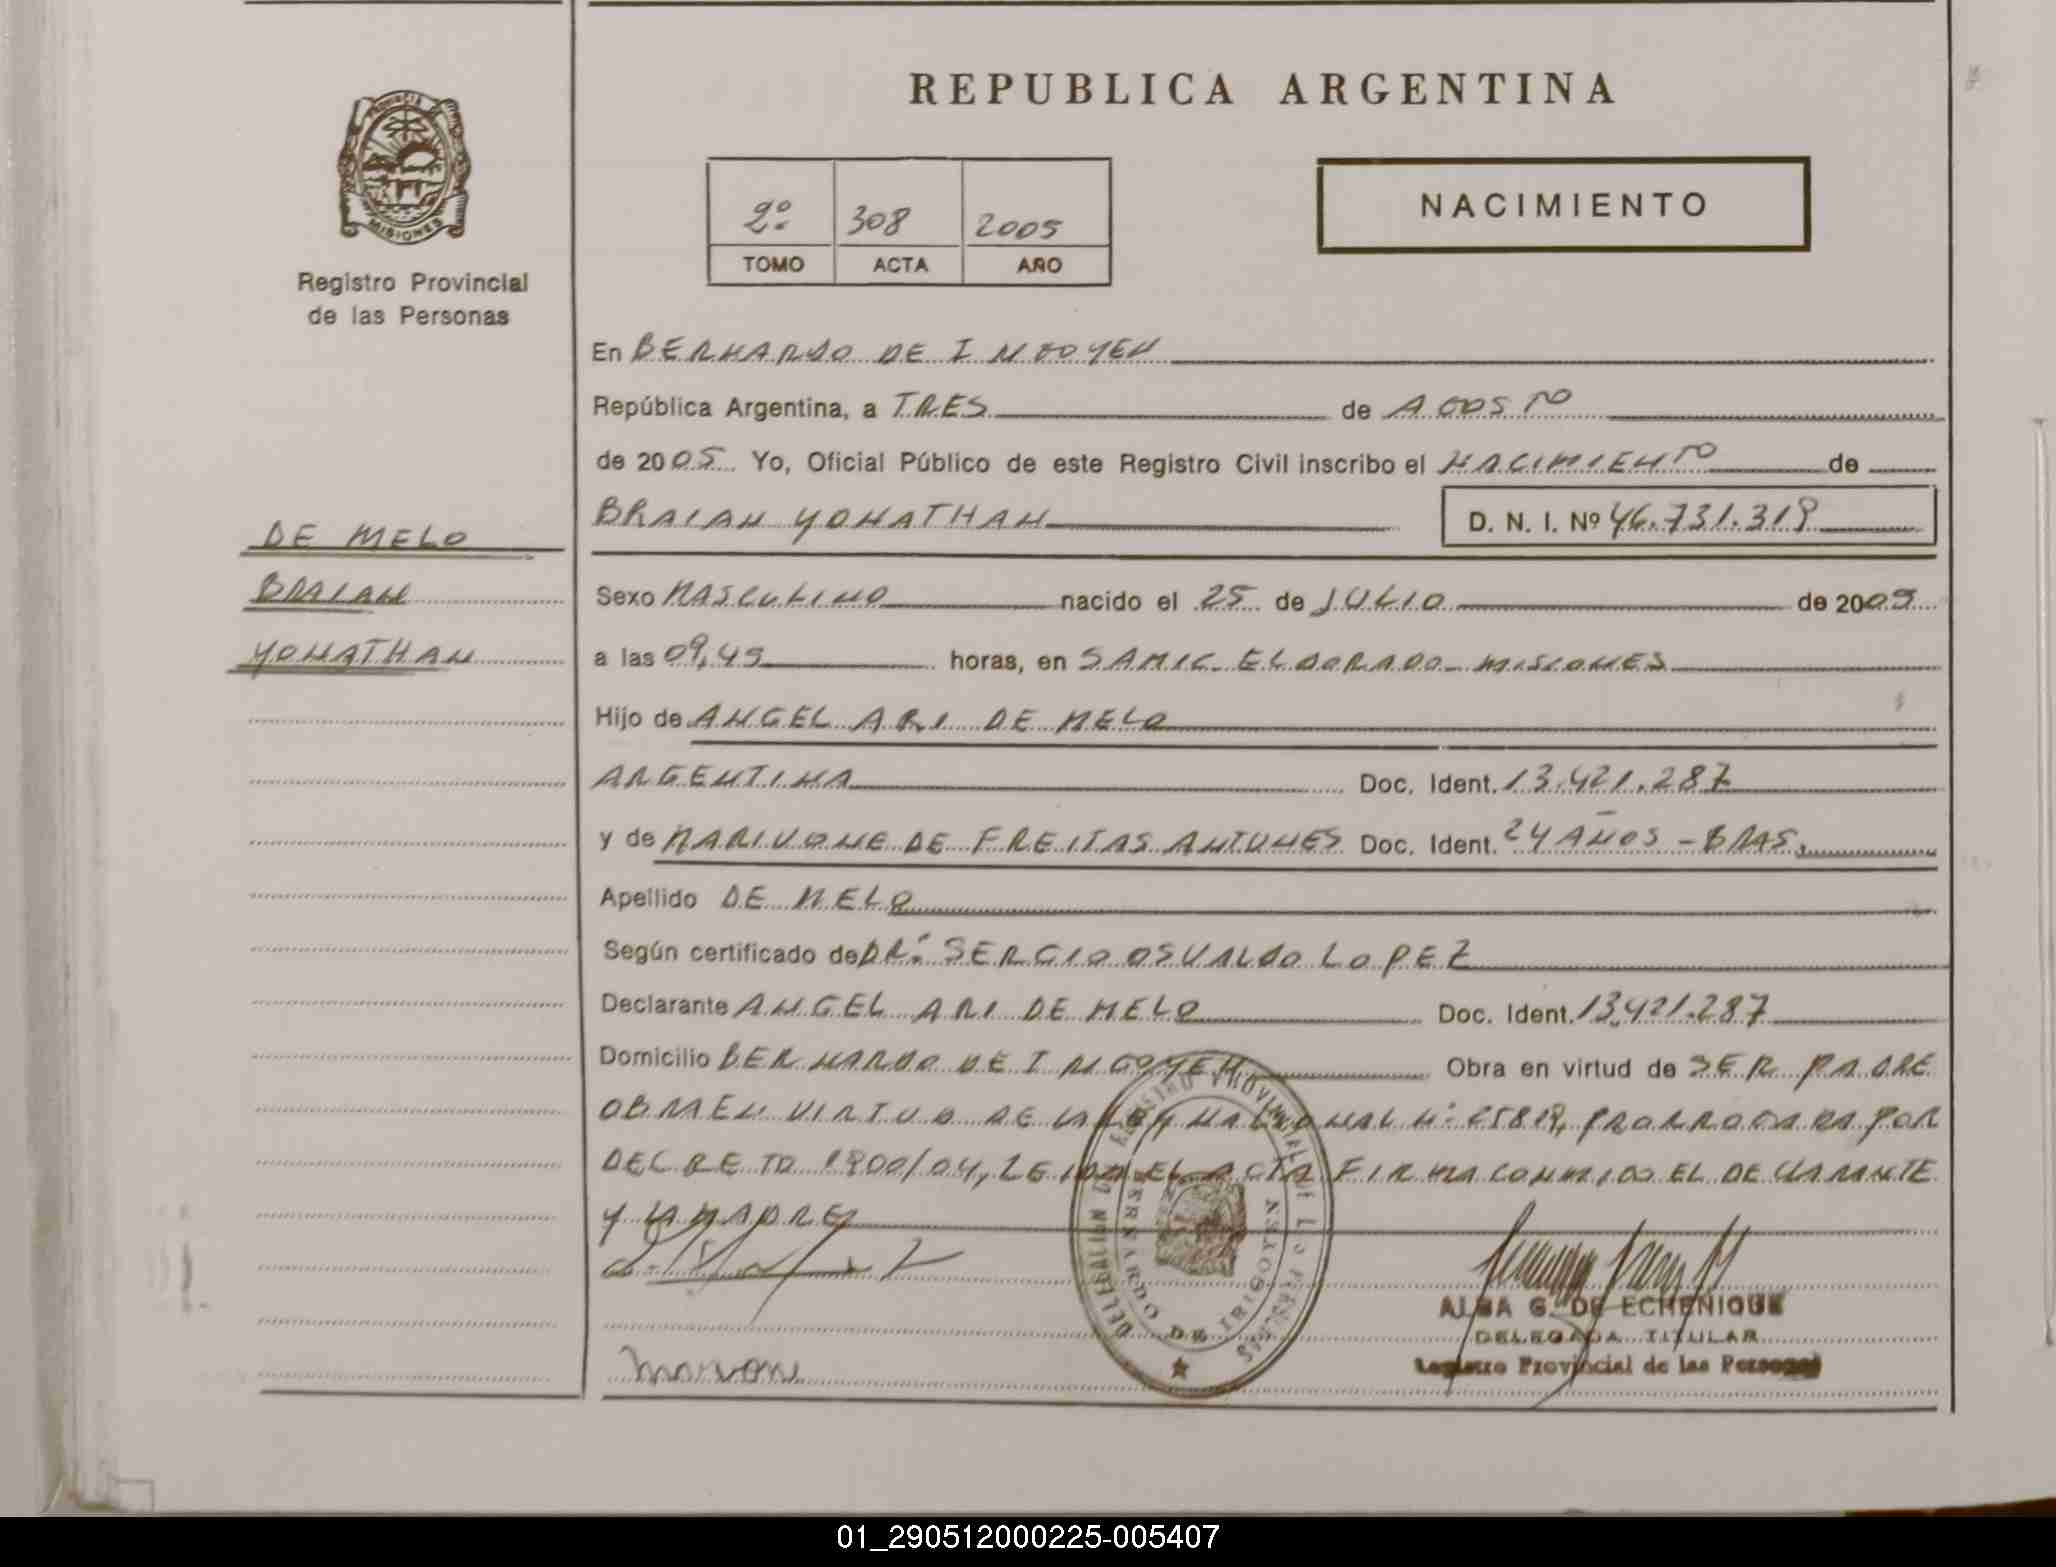 REPUBLICA ARGENTINA
PROVINCIA DE
MISIONES
Registro Provincial
de las Personas
2º 308 2005
TOMO ACTA AÑO
NACIMIENTO
En BERNARDO DE IRIGOYEN
República Argentina, a TRES de AGOSTO
de 2005 Yo, Oficial Público de este Registro Civil inscribo el NACIMIENTO de
BRAIAN YONATHAN D. N. I. Nº 46.731.319
DE MELO
BRAIAN
YONATHAN
Sexo MASCULINO nacido el 25 de JULIO de 2005
a las 09,45 horas, en SAMIC ELDORADO - MISIONES
Hijo de ANGEL ARI DE MELO
ARGENTINA Doc. Ident. 13.421.287
y de MARIVONE DE FREITAS ANTUNES Doc. Ident. 24 AÑOS - BRAS.
Apellido DE MELO
Según certificado de DR. SERGIO OSVALDO LOPEZ
Declarante ANGEL ARI DE MELO Doc. Ident. 13.421.287
Domicilio BERNARDO DE IRIGOYEN Obra en virtud de SER PADRE
OBRA EN VIRTUD DE LA LEY NACIONAL Nº 25819, PRORROGADA POR
DECRETO 1800/04, LEIDA EL ACTA FIRMA CONMIGO EL DECLARANTE
Y LA MADRE
DELEGACION DEL REGISTRO PROVINCIAL DE LAS PERSONAS
BERNARDO DE IRIGOYEN
ALBA G. DE ECHENIQUE
DELEGADA TITULAR
Registro Provincial de las Personas
01_290512000225-005407